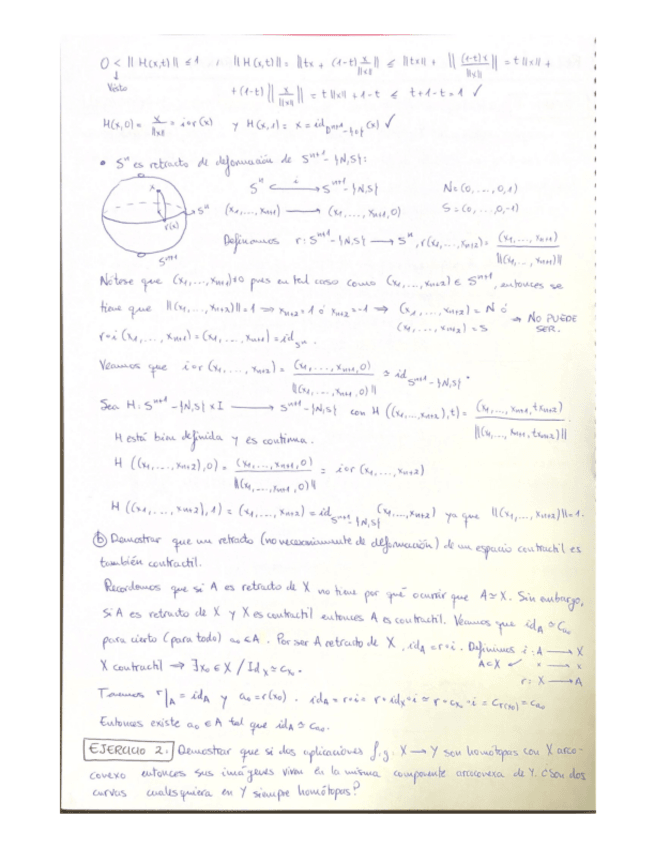 0 < ‖H(x,t)‖ ≤ 1 , ‖H(x,t)‖ = ‖tx + (1-t) x/‖x‖‖ ≤ ‖tx‖ + ‖(1-t)x/‖x‖‖ = t‖x‖ +
Visto
+(1-t)‖x/‖x‖‖ = t‖x‖ + 1-t ≤ t+1-t = 1 ✓
H(x,0) = x/‖x‖ = i∘r(x) y H(x,1) = x = id (x) ✓
• Sⁿ es retracto de deformación de Sⁿ⁺¹-{N,S}:
Sⁿ ↪ Sⁿ⁺¹-{N,S} N=(0,...,0,1)
x
Sⁿ
r(x)
Sⁿ⁺¹
(x₁,...,xₙ₊₁) ⟶ (x₁,...,xₙ₊₁,0) S=(0,...,0,-1)
Definimos r: Sⁿ⁺¹-{N,S} ⟶ Sⁿ, r(x₁,...,xₙ₊₂) = (x₁,...,xₙ₊₁)/‖(x₁,...,xₙ₊₁)‖
Nótese que (x₁,...,xₙ₊₁)≠0 pues en tal caso como (x₁,...,xₙ₊₂) ∈ Sⁿ⁺¹, entonces se
tiene que ‖(x₁,...,xₙ₊₂)‖=1 ⟹ xₙ₊₂=1 ó xₙ₊₂=-1 ⟹ (x₁,...,xₙ₊₂) = N ó
(x₁,...,xₙ₊₂) = S → NO PUEDE SER.
r∘i (x₁,...,xₙ₊₁) = (x₁,...,xₙ₊₁) = id_Sⁿ.
Veamos que i∘r (x₁,...,xₙ₊₂) = (x₁,...,xₙ₊₁,0)/‖(x₁,...,xₙ₊₁,0)‖ ≃ id_Sⁿ⁺¹-{N,S}.
Sea H: Sⁿ⁺¹-{N,S}×I ⟶ Sⁿ⁺¹-{N,S} con H((x₁,...,xₙ₊₂),t) = (x₁,...,xₙ₊₁,txₙ₊₂)/‖(x₁,...,xₙ₊₁,txₙ₊₂)‖
H está bien definida y es continua.
H((x₁,...,xₙ₊₂),0) = (x₁,...,xₙ₊₁,0)/‖(x₁,...,xₙ₊₁,0)‖ = i∘r (x₁,...,xₙ₊₂)
H((x₁,...,xₙ₊₂),1) = (x₁,...,xₙ₊₂) = id_Sⁿ⁺¹-{N,S} (x₁,...,xₙ₊₂) ya que ‖(x₁,...,xₙ₊₂)‖=1.
ⓑ Demostrar que un retracto (no necesariamente de deformación) de un espacio contractil es
también contractil.
Recordemos que si A es retracto de X no tiene por qué ocurrir que A≃X. Sin embargo,
si A es retracto de X y X es contractil entonces A es contractil. Veamos que id_A ≃ c_a₀
para cierto (para todo) a₀∈A. Por ser A retracto de X, id_A = r∘i. Definimos i: A ⟶ X
X contractil ⟹ ∃x₀∈X / Id_X ≃ c_x₀. A⊂X ✓ x ⟶ x
r: X ⟶ A
Tenemos r|_A = id_A y a₀=r(x₀). id_A = r∘i = r∘id_X∘i ≃ r∘c_x₀∘i = c_r(x₀) = c_a₀
Entonces existe a₀∈A tal que id_A ≃ c_a₀.
EJERCICIO 2. Demostrar que si dos aplicaciones f,g: X ⟶ Y son homótopas con X arco-
conexo entonces sus imágenes viven en la misma componente arcoconexa de Y. ¿Son dos
curvas cualesquiera en Y siempre homótopas?